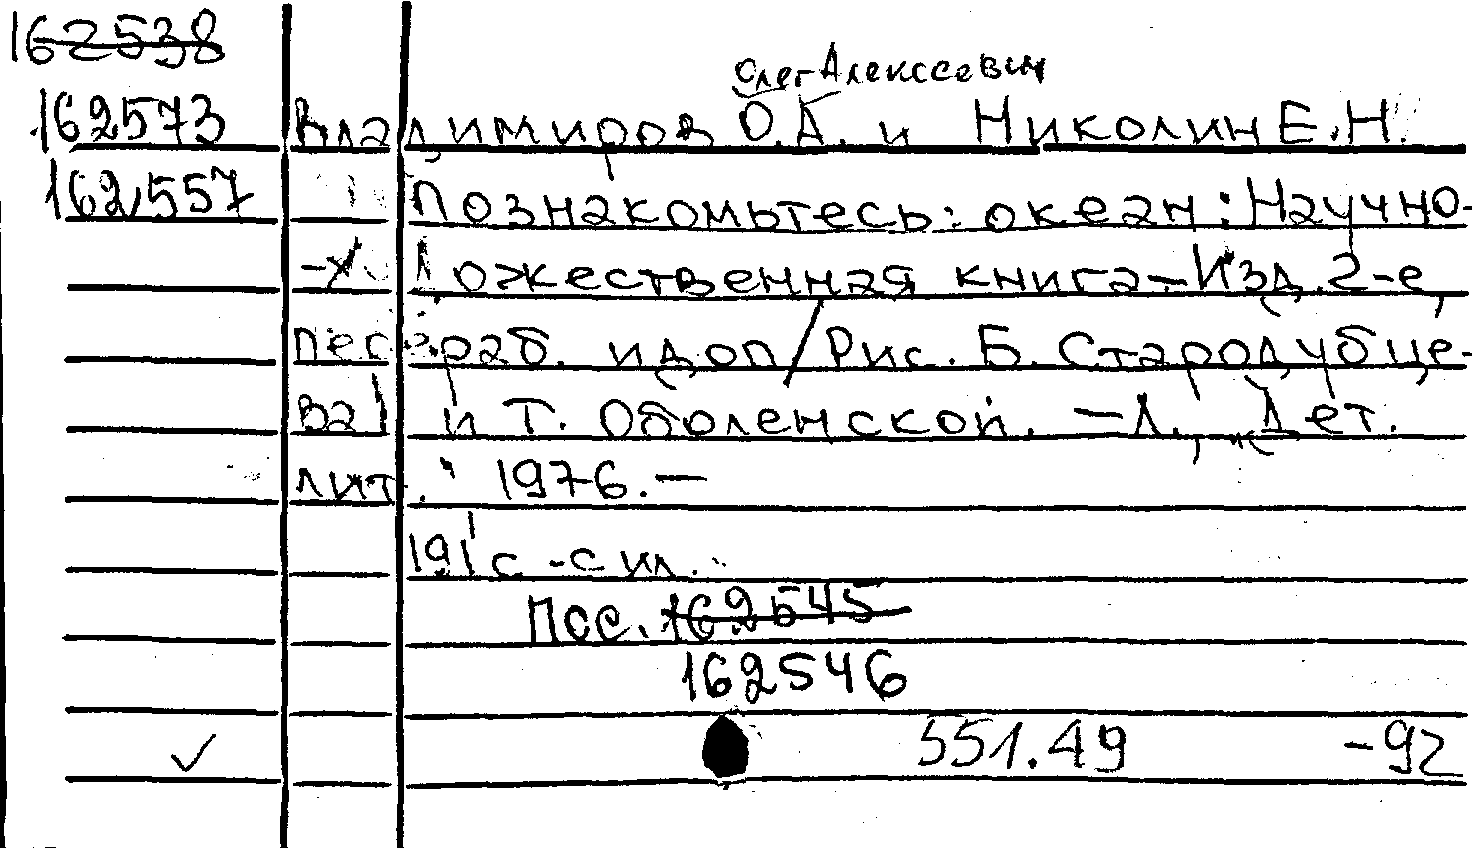 162538
Олег Алексеевич
162573 Владимиров О.А. и Николин Е.Н.
162557 Познакомьтесь: океан: Научно-
-художественная книга–Изд. 2-е,
перераб. и доп/Рис. Б. Стародубце-
ва и Т. Оболенской. – Л., Дет.
лит. 1976. –
191 с. - с ил.
Пос. 162545
162546
551.49 -92